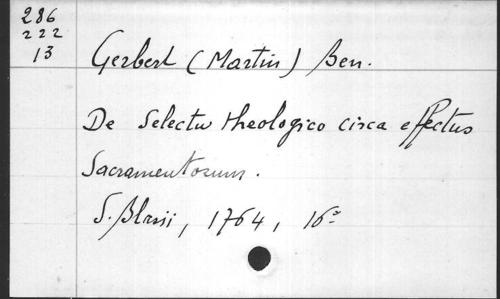 286
222
13
Gerbert (Martin) Ben.
De Selectu theologico circa effectus
Sacramentorum.
S. Blasii, 1764, 16º